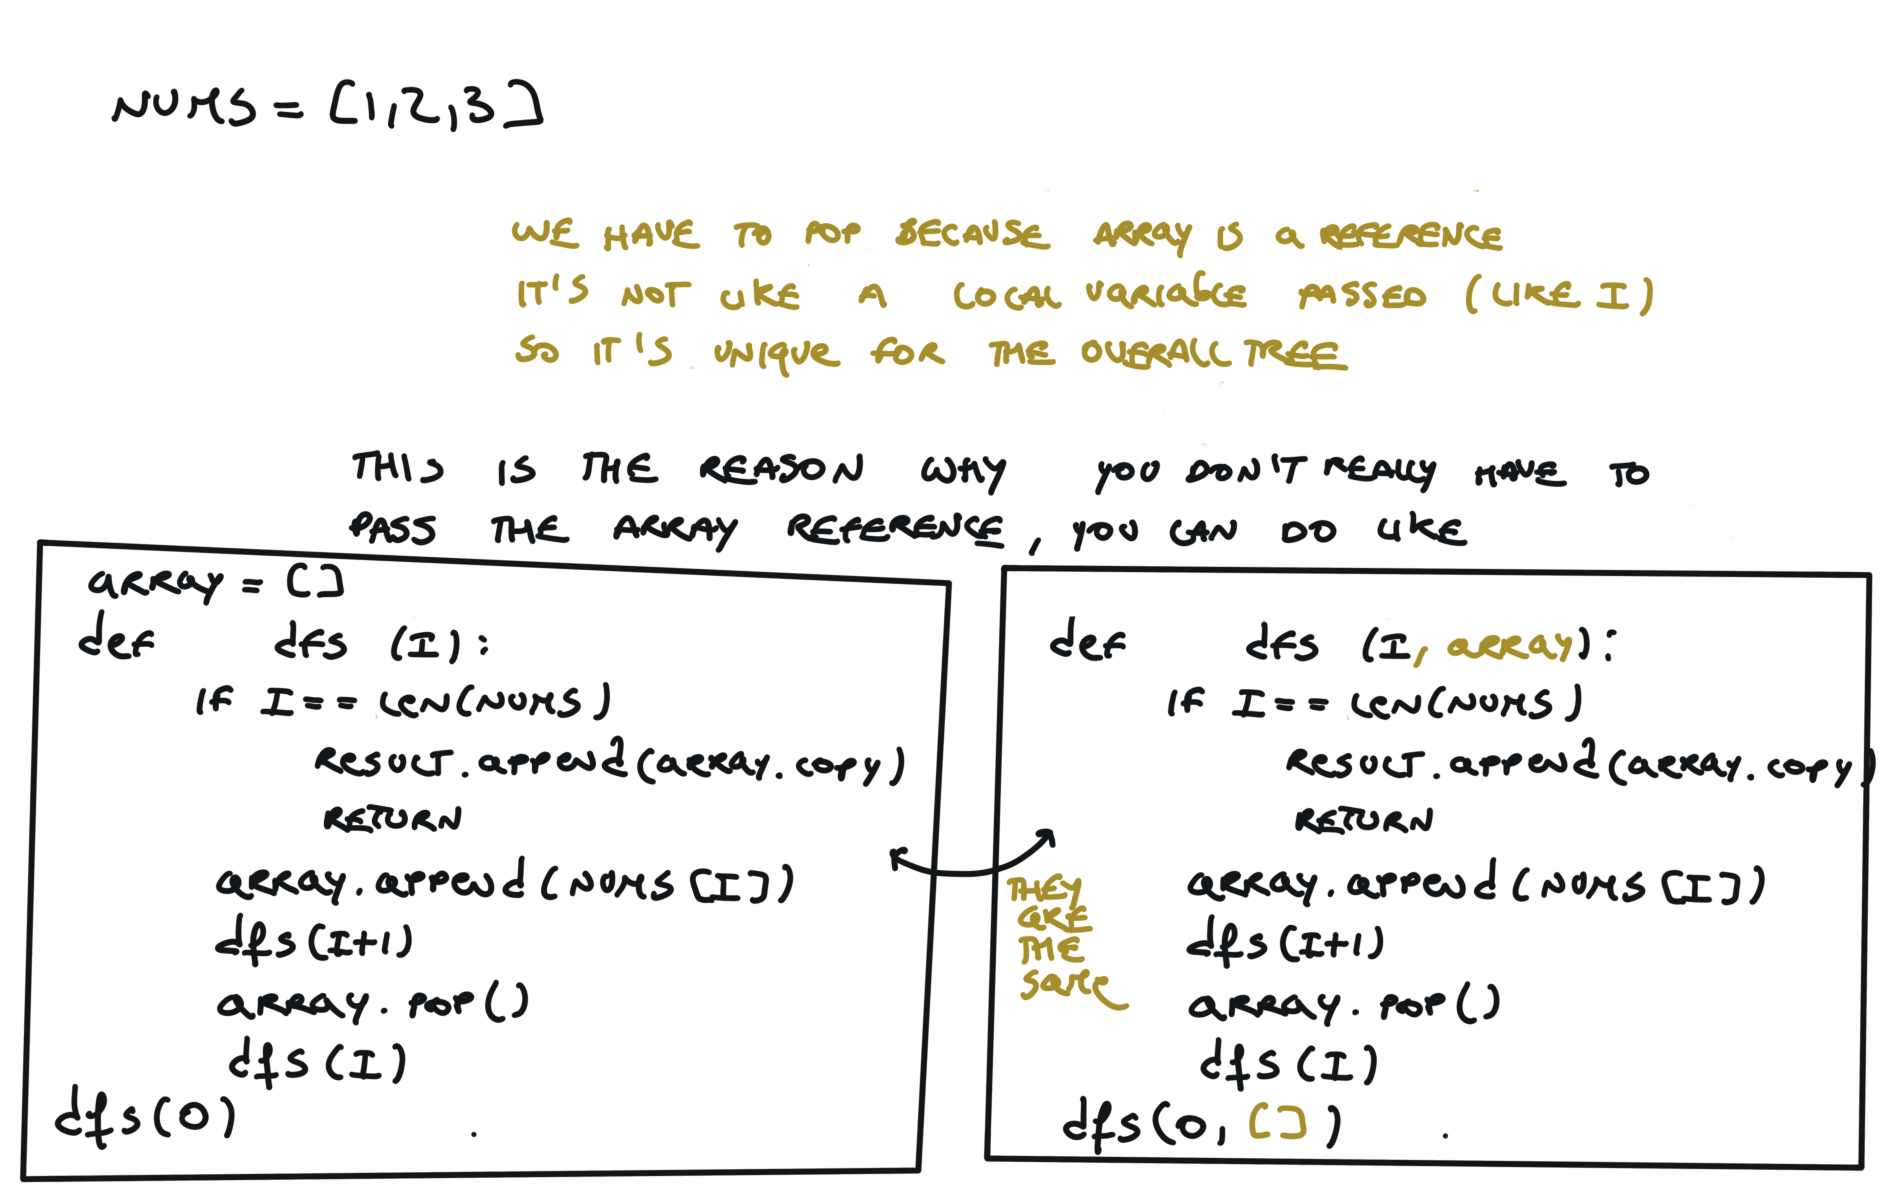 NUMS = [1,2,3]
WE HAVE TO POP BECAUSE ARRAY IS A REFERENCE
IT'S NOT LIKE A LOCAL VARIABLE PASSED (LIKE I)
SO IT'S UNIQUE FOR THE OVERALL TREE
THIS IS THE REASON WHY YOU DON'T REALLY HAVE TO
PASS THE ARRAY REFERENCE, YOU CAN DO LIKE
array = []
def dfs (I):
IF I == LEN(NUMS)
RESULT.append(array.copy)
RETURN
array.append(NUMS[I])
dfs(I+1)
array.pop()
dfs(I)
dfs(0)
THEY
ARE
THE
SAME
def dfs (I, array):
IF I == LEN(NUMS)
RESULT.append(array.copy)
RETURN
array.append(NUMS[I])
dfs(I+1)
array.pop()
dfs(I)
dfs(0, [])